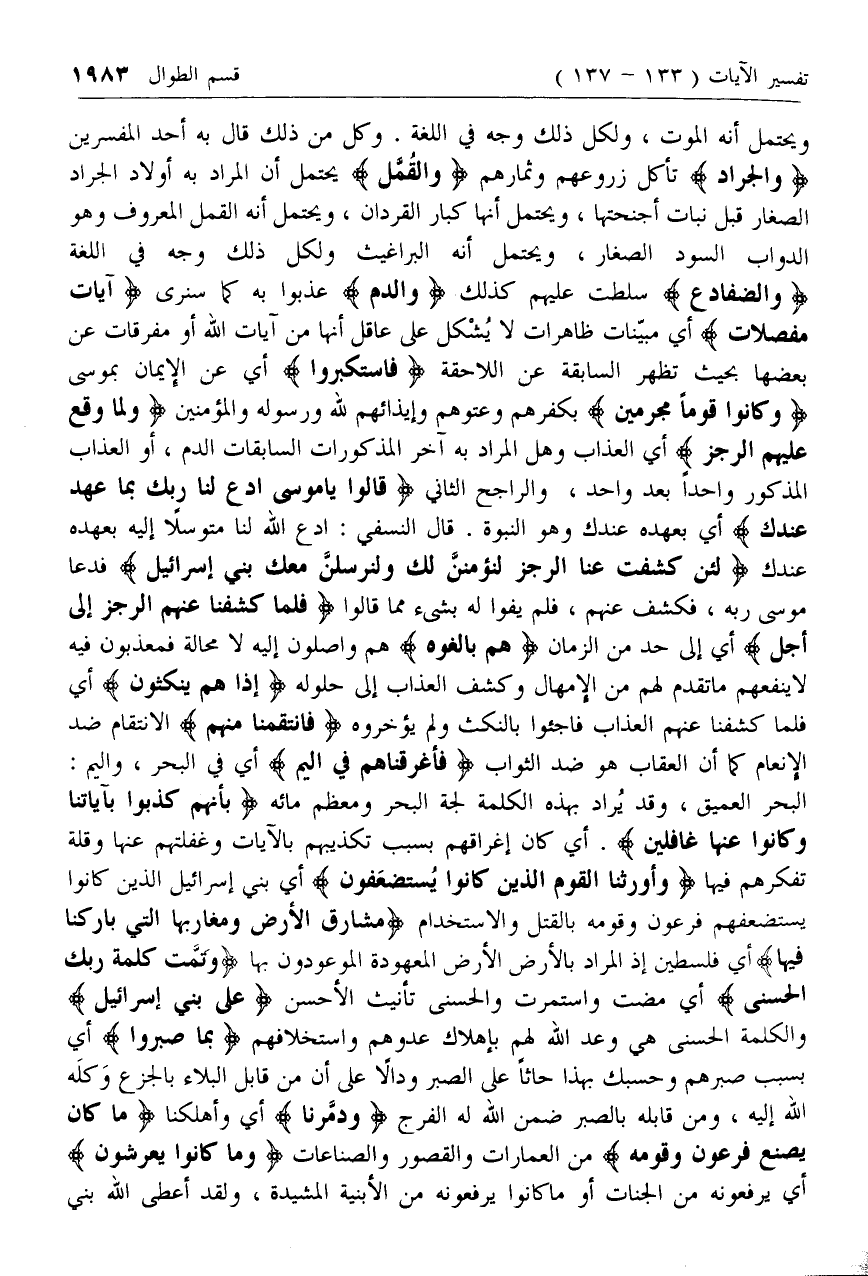 تفسير الآيات ( ١٣٣ - ١٣٧ ) قسم الطوال ١٩٨٣
ويحتمل أنه الموت ، ولكل ذلك وجه في اللغة . وكل من ذلك قال به أحد المفسرين
﴿ والجراد ﴾ تأكل زروعهم وثمارهم ﴿ والقُمَّل ﴾ يحتمل أن المراد به أولاد الجراد
الصغار قبل نبات أجنحتها ، ويحتمل أنها كبار القردان ، ويحتمل أنه القمل المعروف وهو
الدواب السود الصغار ، ويحتمل أنه البراغيث ولكل ذلك وجه في اللغة
﴿ والضفادع ﴾ سلطت عليهم كذلك ﴿ والدم ﴾ عذبوا به كما سنرى ﴿ آيات
مفصلات ﴾ أي مبيّنات ظاهرات لا يُشْكل على عاقل أنها من آيات الله أو مفرقات عن
بعضها بحيث تظهر السابقة عن اللاحقة ﴿ فاستكبروا ﴾ أي عن الإيمان بموسى
﴿ وكانوا قوماً مجرمين ﴾ بكفرهم وعتوهم وإيذائهم لله ورسوله والمؤمنين ﴿ ولما وقع
عليهم الرجز ﴾ أي العذاب وهل المراد به آخر المذكورات السابقات الدم ، أو العذاب
المذكور واحداً بعد واحد ، والراجح الثاني ﴿ قالوا ياموسى ادع لنا ربك بما عهد
عندك ﴾ أي بعهده عندك وهو النبوة . قال النسفي : ادع الله لنا متوسلًا إليه بعهده
عندك ﴿ لئن كشفت عنا الرجز لنؤمننَّ لك ولنرسلنَّ معك بني إسرائيل ﴾ فدعا
موسى ربه ، فكشف عنهم ، فلم يفوا له بشيء مما قالوا ﴿ فلما كشفنا عنهم الرجز إلى
أجل ﴾ أي إلى حد من الزمان ﴿ هم بالغوه ﴾ هم واصلون إليه لا محالة فمعذبون فيه
لاينفعهم ماتقدم لهم من الإمهال وكشف العذاب إلى حلوله ﴿ إذا هم ينكثون ﴾ أي
فلما كشفنا عنهم العذاب فاجئوا بالنكث ولم يؤخروه ﴿ فانتقمنا منهم ﴾ الانتقام ضد
الإنعام كما أن العقاب هو ضد الثواب ﴿ فأغرقناهم في اليم ﴾ أي في البحر ، واليم :
البحر العميق ، وقد يُراد بهذه الكلمة لجة البحر ومعظم مائه ﴿ بأنهم كذبوا بآياتنا
وكانوا عنها غافلين ﴾ . أي كان إغراقهم بسبب تكذيبهم بالآيات وغفلتهم عنها وقلة
تفكرهم فيها ﴿ وأورثنا القوم الذين كانوا يُستضعَفون ﴾ أي بني إسرائيل الذين كانوا
يستضعفهم فرعون وقومه بالقتل والاستخدام ﴿مشارق الأرض ومغاربها التي باركنا
فيها﴾ أي فلسطين إذ المراد بالأرض الأرض المعهودة الموعودون بها ﴿وتَمَّت كلمة ربك
الحسنى ﴾ أي مضت واستمرت والحسنى تأنيث الأحسن ﴿ على بني إسرائيل ﴾
والكلمة الحسنى هي وعد الله لهم بإهلاك عدوهم واستخلافهم ﴿ بما صبروا ﴾ أي
بسبب صبرهم وحسبك بهذا حاثاً على الصبر ودالًا على أن من قابل البلاء بالجزع وَكلَه
الله إليه ، ومن قابله بالصبر ضمن الله له الفرج ﴿ ودمَّرنا ﴾ أي وأهلكنا ﴿ ما كان
يصنع فرعون وقومه ﴾ من العمارات والقصور والصناعات ﴿ وما كانوا يعرشون ﴾
أي يرفعونه من الجنات أو ماكانوا يرفعونه من الأبنية المشيدة ، ولقد أعطى الله بني